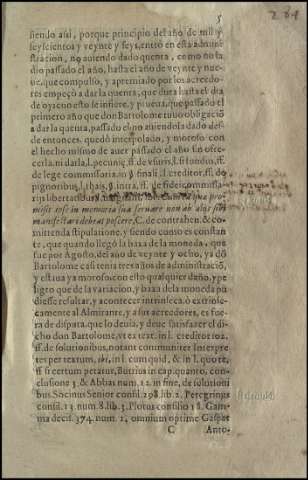 5
siendo assi, porque principio del año de mil y
seyscientos y veynte y seys, entrò en esta adminis-
tracion, no auiendo dado quenta, como no la
dio passado el año, hasta el año de veynte y nue-
ue, que compulso, y apremiado por los acreedo-
res empeçò a dar la quenta, que dura hasta el dia
de oy, como esto se infiere, y prueua, que passado el
primero año que don Bartolome tuuo obligació
a dar la quenta, passado el año no auiendola dado des-
de entonces, quedò interpelado, y moroso con
el hecho mismo de auer passado el año sin ofre-
cerla, ni darla, l. pecuniæ, ff. de vsuris, l. si fundo, ff.
de lege commissoria, in § finali, l. creditor, ff. de
pignoribus, l. thais, §. intra, ff. de fideicommissa-
rijs libertatibus,
manifestari debeat poscere, C. de contrahen. & co-
mittenda stipulatione, y siendo como es constan
te, que quando llegò la baxa de la moneda, que
fue por Agosto, del año de veynte y ocho, ya dõ
Bartolome casi tenia tres años de administraciõ,
y estaua ya moroso, con esto qualquier daño, y pe-
ligro que de la variacion, y baxa de la moneda pu
diesse resultar, y acontecer intrinseca, ò extrinse-
camente al Almirante, y a sus acreedores, es fue-
ra de disputa, que lo deuia, y deue satisfazer el di-
cho don Bartolome, vt ex text. in l. creditor 102.
ff. de solutionibus, notant communiter Interpre-
tes per textum, ibi, in l. cum quid, & in l. quore,
ff. si certum petatur, Butrius in cap. quanto, con-
clusione 3. & Abbas num. 12. in fine, de solutioni
bus. Socinus Senior consil. 298. lib. 2. Peregrinus
consil. 13. num. 8. lib. 3. Plotus consilio 18. Gam-
ma decis. 374. num. 2, omnium optime Gaspar
C Anto-